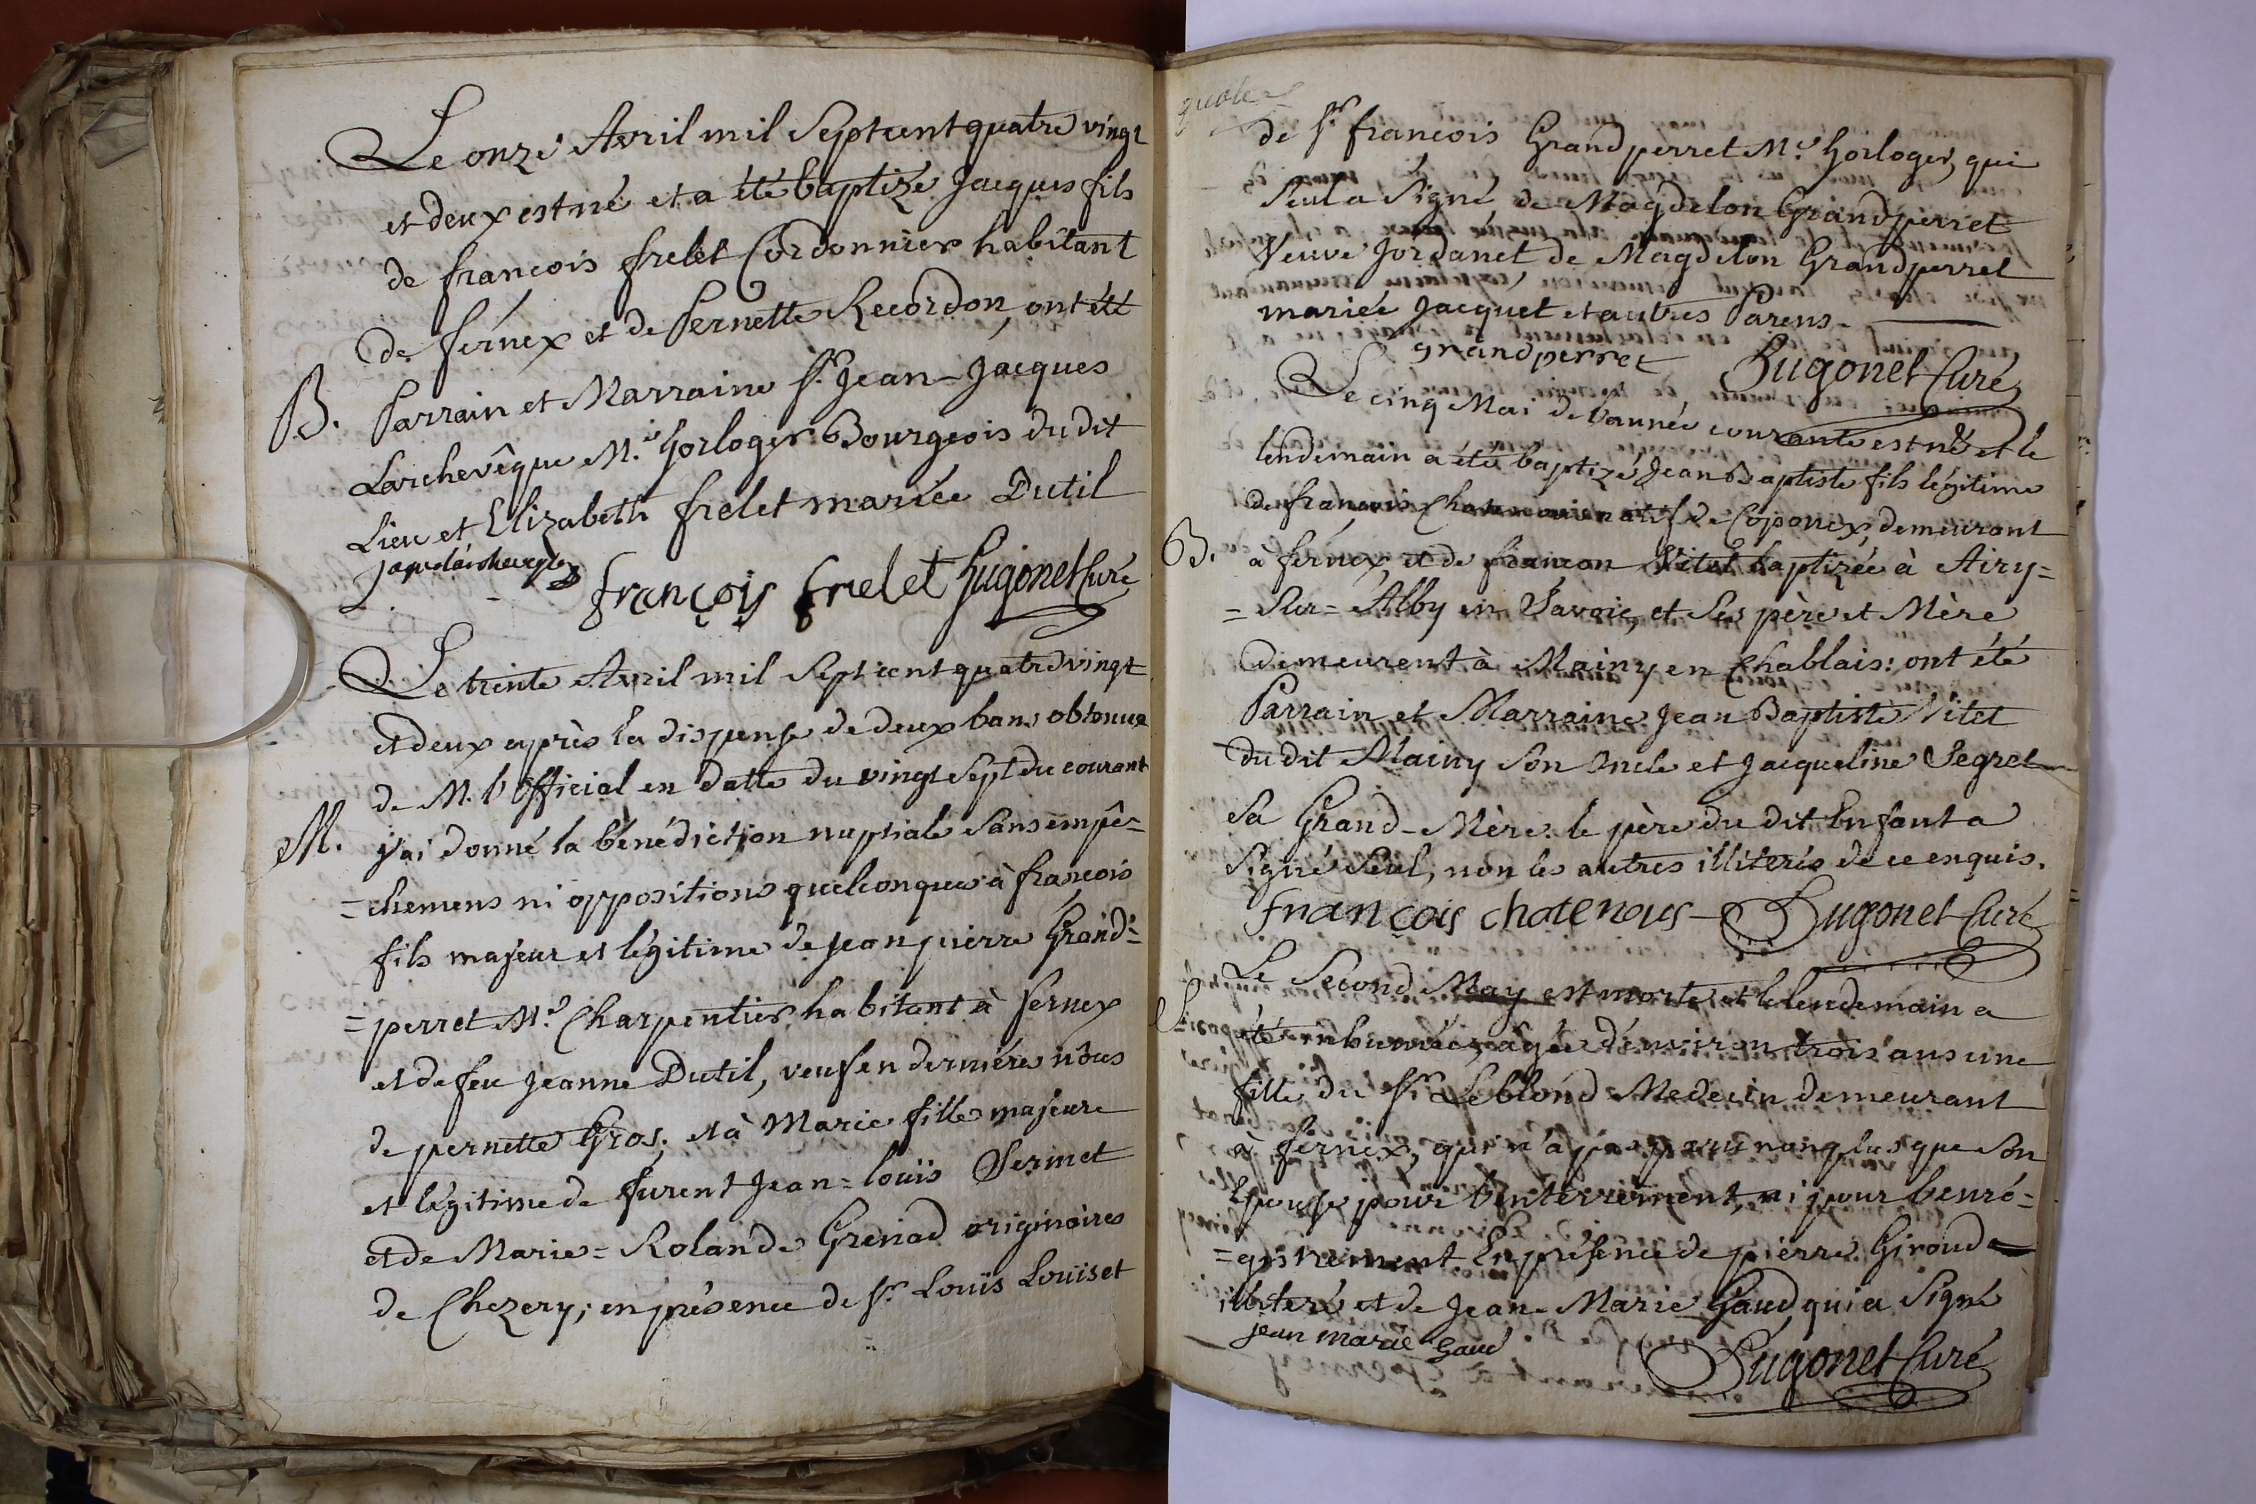 Le onze Avril mil Septcent quatre vingt
et deux est né et a été baptizé Jacques fils
de françois frelet Cordonnier habitant
de férnex et de Pernette Recordon, ont été
B. Parrain et Marraine Sr. Jean-Jacques
Larchevêque Me. horloger Bourgeois du dit
Lieu et Elizabeth frelet mariée Dutil
françois frelet hugonet Curé
Le trente Avril mil Septcent quatre vingt
et deux après la dispense de deux bans obtenue
de M. l'official en datte du vingt sept du courant
M. j'ai donné la bénédiction nuptiale sans empê=
=chemens ni oppositions quelconques à françois
fils majeur et légitime de jean pierre Grand=
=perret Me. Charpentier habitant à fernex
et de feu jeanne Dutil, veuf en derniéres nôces
de pernette Gros; et à Marie fille majeure
et légitime de furent Jean=louïs Sermet
et de Marie=Rolande Grenad originaires
de Chezery; en présence de Sr. Louïs Louïset
de Sr. françois Grandperret Me. horloger, qui
seul a Signé de Magdelon Grandperret
Veuve Jordanet de Magdelon Grandperret
mariée Jacquet et autres Parens.
grandperret Hugonet Curé
Le cinq Mai de l'année courante est né et le
lendemain a été baptizé Jean Baptiste fils légitime
de françois natif de Coponex, demeurant
B. à fernex et de françon Vitet baptizée à Airy=
=Sur=Alby en Savoie, et ses père et Mère
demeurent à Mainy en Chablais: ont été
Parrain et Marraine Jean Baptiste Vitet
du dit Mainy son oncle et Jacqueline Segret
sa Grand-Mère. le père du dit Enfant a
signé seul, non les autres illiterés de ce enquis.
françois chatenous Hugonet Curé
Le Second May est morte et le lendemain a
S. été inhumée, âgée d'environ trois ans une
fille du Sr. Leblond Medecin demeurant
à fernex, qui n'a pas paru non plus que son
Epouse pour l'enterrement, ni pour l'enré=
=gistrement. En présence de pierre Giroud
illiteré et de Jean-Marie Gaud qui a Signé
jean marie Gaud
Hugonet Curé